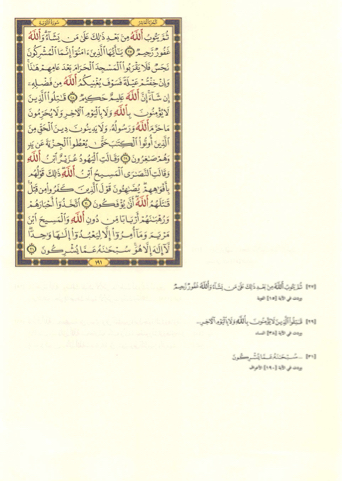 الجزء العاشر
سورة التوبة
ثُمَّ يَتُوبُ ٱللَّهُ مِنۢ بَعْدِ ذَٰلِكَ عَلَىٰ مَن يَشَآءُ وَٱللَّهُ
غَفُورٌ رَّحِيمٌ ٢٧ يَٰٓأَيُّهَا ٱلَّذِينَ ءَامَنُوٓا۟ إِنَّمَا ٱلْمُشْرِكُونَ
نَجَسٌ فَلَا يَقْرَبُوا۟ ٱلْمَسْجِدَ ٱلْحَرَامَ بَعْدَ عَامِهِمْ هَٰذَا
وَإِنْ خِفْتُمْ عَيْلَةً فَسَوْفَ يُغْنِيكُمُ ٱللَّهُ مِن فَضْلِهِۦٓ
إِن شَآءَ إِنَّ ٱللَّهَ عَلِيمٌ حَكِيمٌ ٢٨ قَٰتِلُوا۟ ٱلَّذِينَ
لَا يُؤْمِنُونَ بِٱللَّهِ وَلَا بِٱلْيَوْمِ ٱلْءَاخِرِ وَلَا يُحَرِّمُونَ
مَا حَرَّمَ ٱللَّهُ وَرَسُولُهُۥ وَلَا يَدِينُونَ دِينَ ٱلْحَقِّ مِنَ
ٱلَّذِينَ أُوتُوا۟ ٱلْكِتَٰبَ حَتَّىٰ يُعْطُوا۟ ٱلْجِزْيَةَ عَن يَدٍ
وَهُمْ صَٰغِرُونَ ٢٩ وَقَالَتِ ٱلْيَهُودُ عُزَيْرٌ ٱبْنُ ٱللَّهِ
وَقَالَتِ ٱلنَّصَٰرَى ٱلْمَسِيحُ ٱبْنُ ٱللَّهِ ذَٰلِكَ قَوْلُهُم
بِأَفْوَٰهِهِمْ يُضَٰهِـُٔونَ قَوْلَ ٱلَّذِينَ كَفَرُوا۟ مِن قَبْلُ
قَٰتَلَهُمُ ٱللَّهُ أَنَّىٰ يُؤْفَكُونَ ٣٠ ٱتَّخَذُوٓا۟ أَحْبَارَهُمْ
وَرُهْبَٰنَهُمْ أَرْبَابًا مِّن دُونِ ٱللَّهِ وَٱلْمَسِيحَ ٱبْنَ
مَرْيَمَ وَمَآ أُمِرُوٓا۟ إِلَّا لِيَعْبُدُوٓا۟ إِلَٰهًا وَٰحِدًا
لَّآ إِلَٰهَ إِلَّا هُوَ سُبْحَٰنَهُۥ عَمَّا يُشْرِكُونَ ٣١
١٩١
[٢٧] ثُمَّ يَتُوبُ ٱللَّهُ مِنۢ بَعْدِ ذَٰلِكَ عَلَىٰ مَن يَشَآءُ وَٱللَّهُ غَفُورٌ رَّحِيمٌ
في الآية [١٥] التوبة
[٢٩] قَٰتِلُوا۟ ٱلَّذِينَ لَا يُؤْمِنُونَ بِٱللَّهِ وَلَا بِٱلْيَوْمِ ٱلْءَاخِرِ...
في الآية [٣٨] النساء
[٣١] ... سُبْحَٰنَهُۥ عَمَّا يُشْرِكُونَ
في الآية [١٩٠] الأعراف